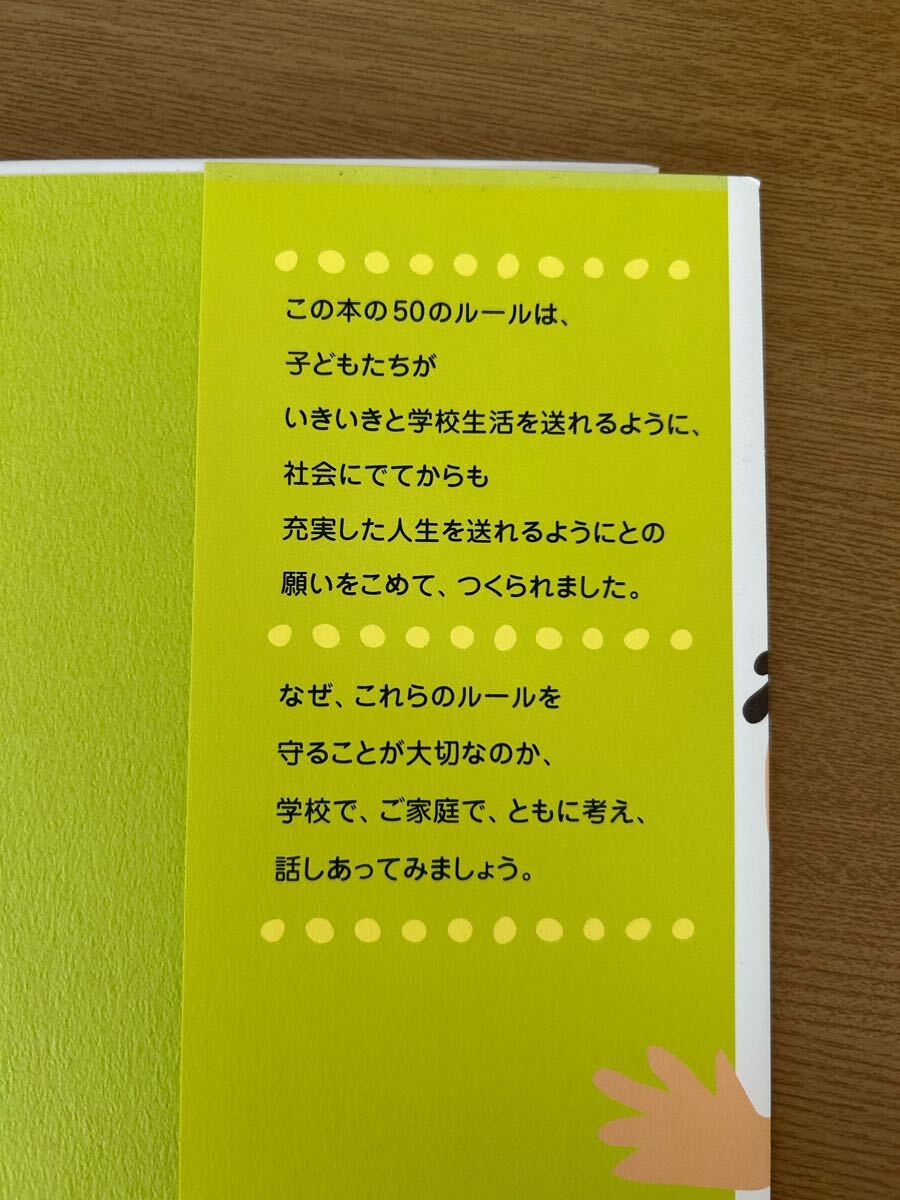 この本の50のルールは、
子どもたちが
いきいきと学校生活を送れるように、
社会にでてからも
充実した人生を送れるようにとの
願いをこめて、つくられました。
なぜ、これらのルールを
守ることが大切なのか、
学校で、ご家庭で、ともに考え、
話しあってみましょう。